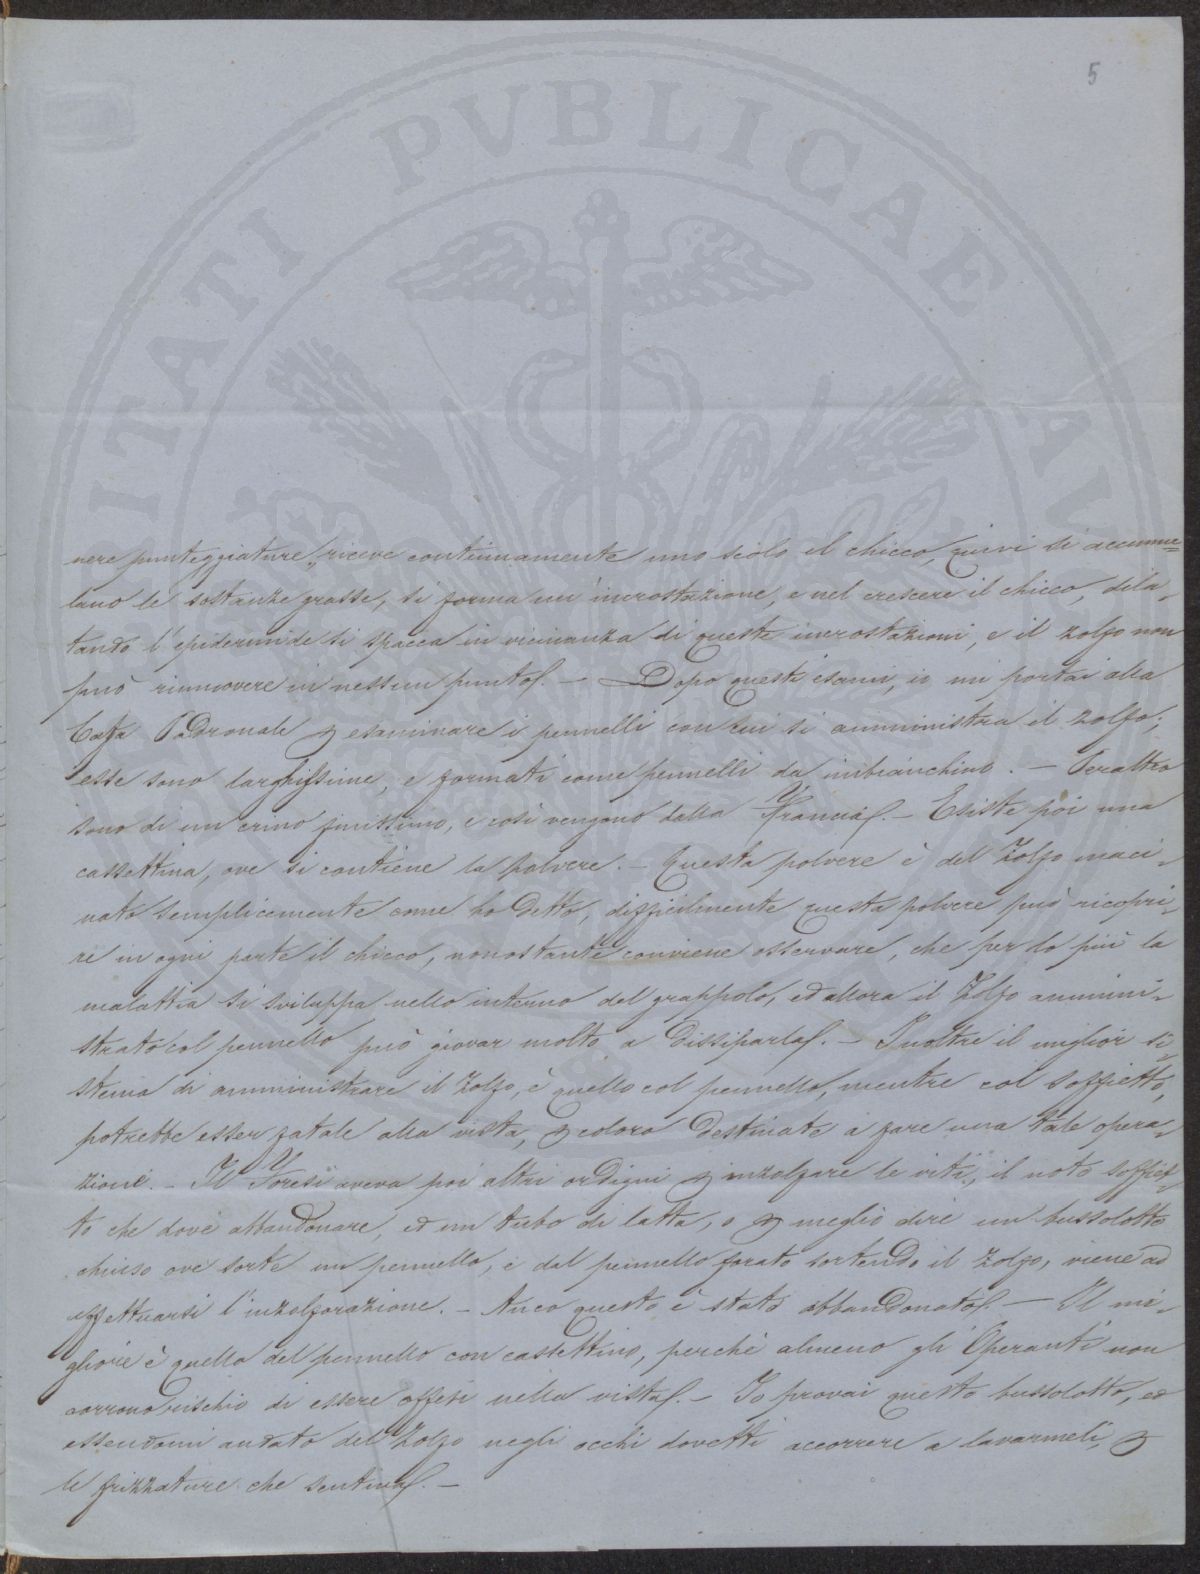 5
PROSPERITATI PUBLICAE AUGENDAE
nere punteggiature, riceve continuamente uno scolo il chicco, quivi si accumu=
lano le sostanze grasse, si forma un'incrostazione, e nel crescere il chicco, dila-
tando l'epidermide si spacca in vicinanza di queste incrostazioni, e il zolfo non
può rimuovere in nessun punto. — Dopo questi esami, io mi portai alla
Casa Padronale p esaminare i pennelli con cui si amministra il zolfo;
esse sono larghissime, e formati come pennelli da imbianchino. — Peraltro
sono di un crino finissimo, e così vengono dalla Francia. — Esiste poi una
cassettina, ove si contiene la polvere. — Questa polvere è del Zolfo maci-
nato semplicemente come ho detto, difficilmente questa polvere può ricopri-
re in ogni parte il chicco, nonostante conviene osservare, che per lo più la
malattia si sviluppa nello interno del grappolo, ed allora il Zolfo ammini-
strato col pennello può giovar molto a dissiparla. — Inoltre il miglior si-
stema di amministrare il Zolfo, è quello col pennello, mentre col soffietto,
potrebbe esser fatale alla vista, p coloro destinate a fare una tale opera-
zione. — Il Foresi aveva poi altri ordigni p inzolfare le viti, il noto soffiet-
to che dovè abbandonare, ed un tubo di latta, o p meglio dire un bussolotto
chiuso ove sorte un pennello, e dal pennello forato sortendo il Zolfo, viene ad
effettuarsi l'inzolforazione. — Anco questo è stato abbandonato. — Il mi-
gliore è quello del pennello con castettino, perchè almeno gli Operanti non
corrono rischio di essere offesi nella vista. — Io provai questo bussolotto, ed
essendomi andato del Zolfo negli occhi dovetti accorrere a lavarmeli, p
le frizzature che sentiva. —